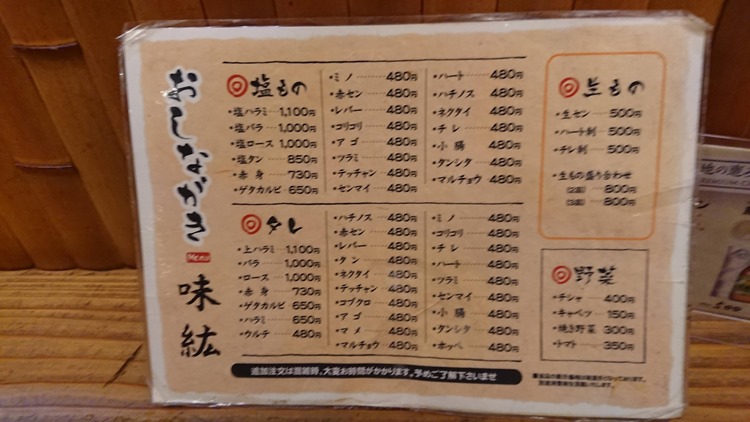 おしながき
Menu
味紘
塩もの
・塩ハラミ…1,100円
・塩バラ…1,000円
・塩ロース…1,000円
・塩タン……850円
・赤身……730円
・ゲタカルビ…650円
・ミノ………480円
・赤セン……480円
・レバー……480円
・コリコリ……480円
・アゴ………480円
・ツラミ……480円
・テッチャン…480円
・センマイ……480円
・ハート……480円
・ハチノス……480円
・ネクタイ……480円
・チレ………480円
・小腸………480円
・タンシタ……480円
・マルチョウ…480円
タレ
・上ハラミ…1,100円
・バラ……1,000円
・ロース…1,000円
・赤身……730円
・ゲタカルビ…650円
・ハラミ……650円
・ウルテ……480円
・ハチノス……480円
・赤セン……480円
・レバー……480円
・タン………480円
・ネクタイ……480円
・テッチャン…480円
・コブクロ……480円
・アゴ………480円
・マメ………480円
・マルチョウ…480円
・ミノ………480円
・コリコリ……480円
・チレ………480円
・ハート……480円
・ツラミ……480円
・センマイ……480円
・小腸………480円
・タンシタ……480円
・ホッペ……480円
生もの
・生セン……500円
・ハート刺……500円
・チレ刺……500円
・生もの盛り合わせ
(2品)……800円
(3品)……800円
野菜
・チシャ……400円
・キャベツ…150円
・焼き野菜 300円
・トマト……350円
追加注文は混雑時、大変お時間がかかります。予めご了解下さいませ